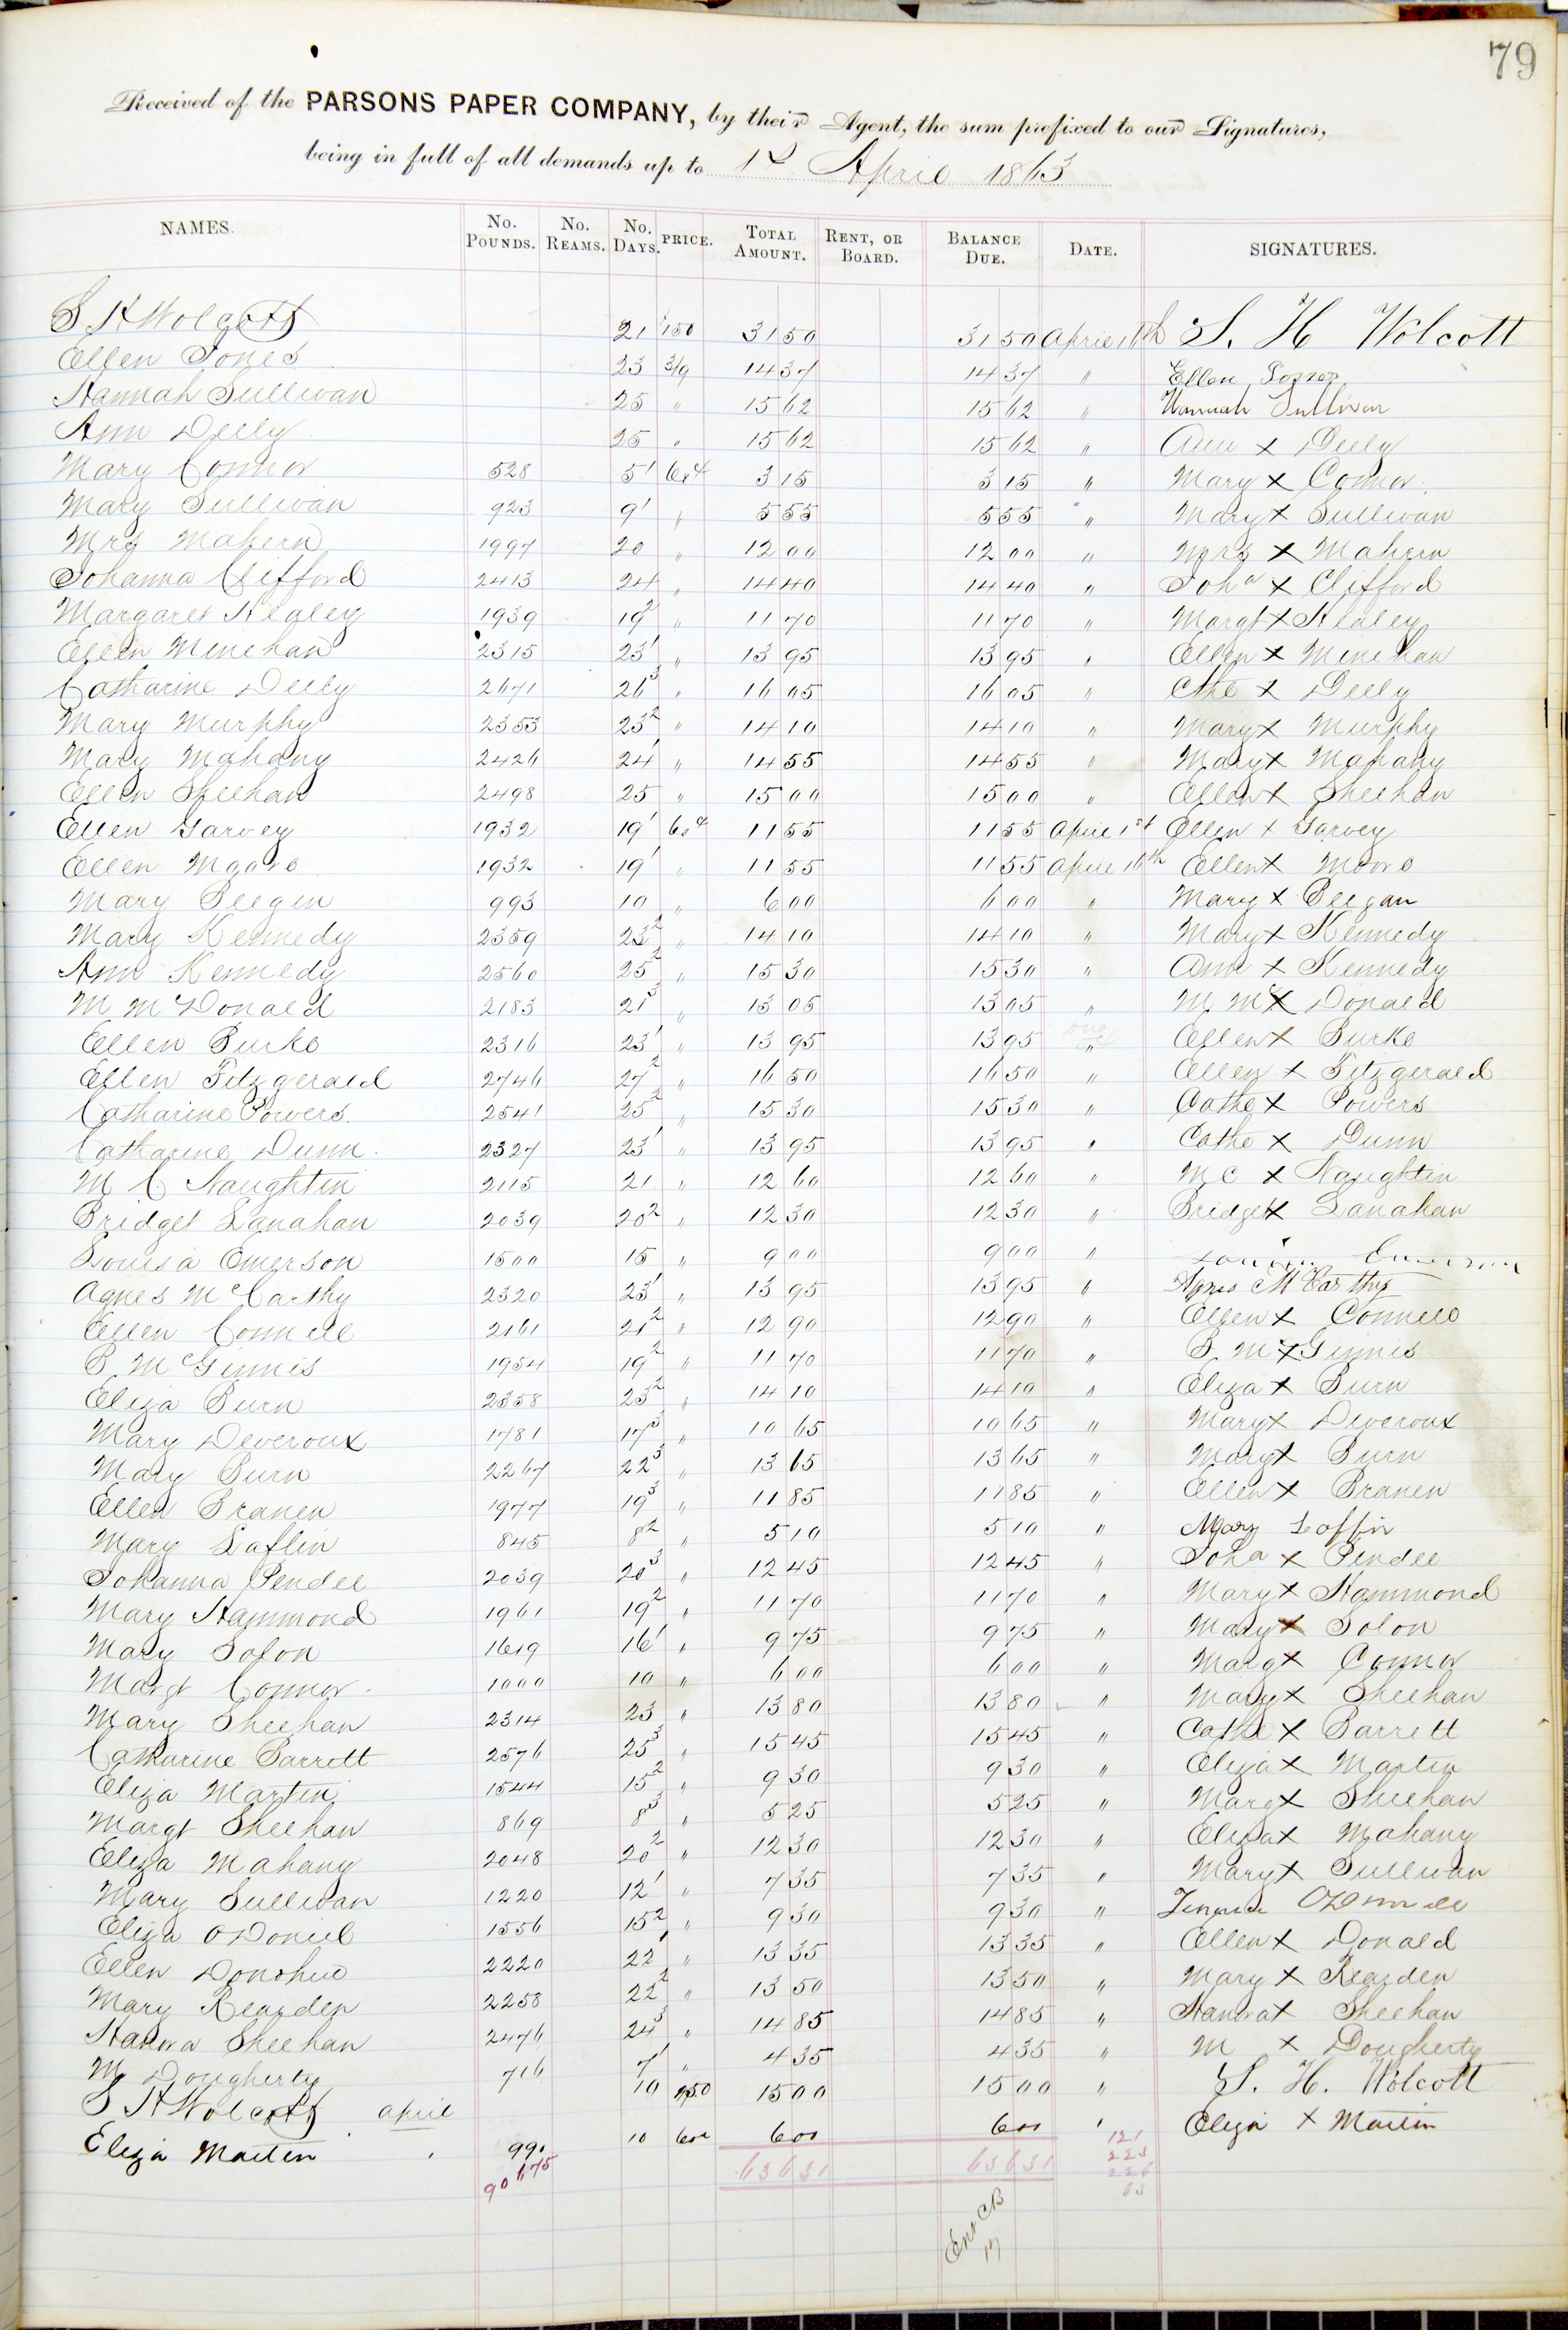 79
Received of the PARSONS PAPER COMPANY, by their Agent, the sum prefixed to our Signatures,
being in full of all demands up to 1st April 1863
NAMES. No. POUNDS. No. REAMS. No. DAYS. PRICE. TOTAL AMOUNT. RENT, OR BOARD. BALANCE DUE. DATE. SIGNATURES.
S H Wolcott 21 150 31 50 31 50 April 16th S. H Wolcott
Ellen Jones 23 3/9 14 37 14 37 " Ellen Jones
Hannah Sullivan 25 " 15 62 15 62 " Hannah Sullivan
Ann Deely 25 " 15 62 15 62 " Ann x Deely
Mary Connor 528 5 1 60c 3 15 3 15 " Mary x Connor
Mary Sullivan 923 9 1 " 5 55 5 55 " Mary x Sullivan
Mrs Mahern 1997 20 " 12 00 12 00 " Mrs x Mahern
Johanna Clifford 2413 24 " 14 40 14 40 " Joha x Clifford
Margaret Healey 1939 19 2 " 11 70 11 70 " Margt x Healey
Ellen Minehan 2315 23 1 " 13 95 13 95 " Ellen x Minehan
Catharine Deely 2671 26 3 " 16 05 16 05 " Cthe x Deely
Mary Murphy 2353 23 2 " 14 10 14 10 " Mary x Murphy
Mary Mahany 2426 24 1 " 14 55 14 55 " Mary x Mahany
Ellen Sheehan 2498 25 " 15 00 15 00 " Ellen x Sheehan
Ellen Garvey 1932 19 1 60c 11 55 11 55 April 1st Ellen x Garvey
Ellen Moore 1932 19 1 11 55 11 55 April 16th Ellen x Moore
Mary Beegen 993 10 " 6 00 6 00 " Mary x Beegan
Mary Kennedy 2359 23 2 " 14 10 14 10 " Mary x Kennedy
Ann Kennedy 2560 25 2 " 15 30 15 30 " Ann x Kennedy
M McDonald 2183 21 3 " 13 05 13 05 " M Mc x Donald
Ellen Burke 2316 23 1 " 13 95 13 95 " Ellen x Burke
Ellen Fitzgerald 2746 27 2 " 16 50 16 50 " Ellen x Fitzgerald
Catharine Powers 2541 25 2 " 15 30 15 30 " Cathe x Powers
Catharine Dunn 2327 23 1 " 13 95 13 95 " Cathe x Dunn
M C Naughtin 2115 21 " 12 60 12 60 " M C x Naughtin
Bridget Lanahan 2039 20 2 " 12 30 12 30 " Bridget x Lanahan
Louisa Emerson 1500 15 " 9 00 9 00 " Louisa Emerson
Agnes McCarthy 2320 23 1 " 13 95 13 95 " Agnes McCarthy
Ellen Connell 2161 21 2 " 12 90 12 90 " Ellen x Connell
B McGinnis 1954 19 2 " 11 70 11 70 " B Mc x Ginnis
Eliza Burn 2358 23 2 " 14 10 14 10 " Eliza x Burn
Mary Deveroux 1781 17 3 " 10 65 10 65 " Mary x Deveroux
Mary Burn 2267 22 3 " 13 65 13 65 " Mary x Burn
Ellen Branen 1977 19 3 " 11 85 11 85 " Ellen x Branen
Mary Laflin 845 8 2 " 5 10 5 10 " Mary Loffin
Johanna Pendee 2039 20 3 " 12 45 12 45 " Joha x Pendee
Mary Hammond 1961 19 2 " 11 70 11 70 " Mary x Hammond
Mary Solon 1619 16 1 " 9 75 9 75 " Mary x Solon
Margt Connor 1000 10 " 6 00 6 00 " Marg x Connor
Mary Sheehan 2314 23 " 13 80 13 80 " Mary x Sheehan
Catharine Barrett 2576 25 3 " 15 45 15 45 " Cathe x Barrett
Eliza Martin 1544 15 2 " 9 30 9 30 " Eliza x Martin
Margt Sheehan 869 8 3 " 5 25 5 25 " Marg x Sheehan
Eliza Mahany 2048 20 2 " 12 30 12 30 " Eliza x Mahany
Mary Sullivan 1220 12 1 " 7 35 7 35 " Mary x Sullivan
Eliza ODoniel 1556 15 2 " 9 30 9 30 "
Ellen Donohue 2220 22 1 " 13 35 13 35 " Ellen x Donald
Mary Rearden 2258 22 2 " 13 50 13 50 " Mary x Rearden
Hanora Sheehan 2476 24 3 " 14 85 14 85 " Hanora x Sheehan
M Dougherty 716 7 1 " 4 35 4 35 " M x Dougherty
S H Wolcott april 10 150 15 00 15 00 " S. H. Wolcott
Eliza Martin 990 10 60c 6 00 6 00 " Eliza x Martin
90 675 636 31 636 31 121
223
226
63
Ent CB
17